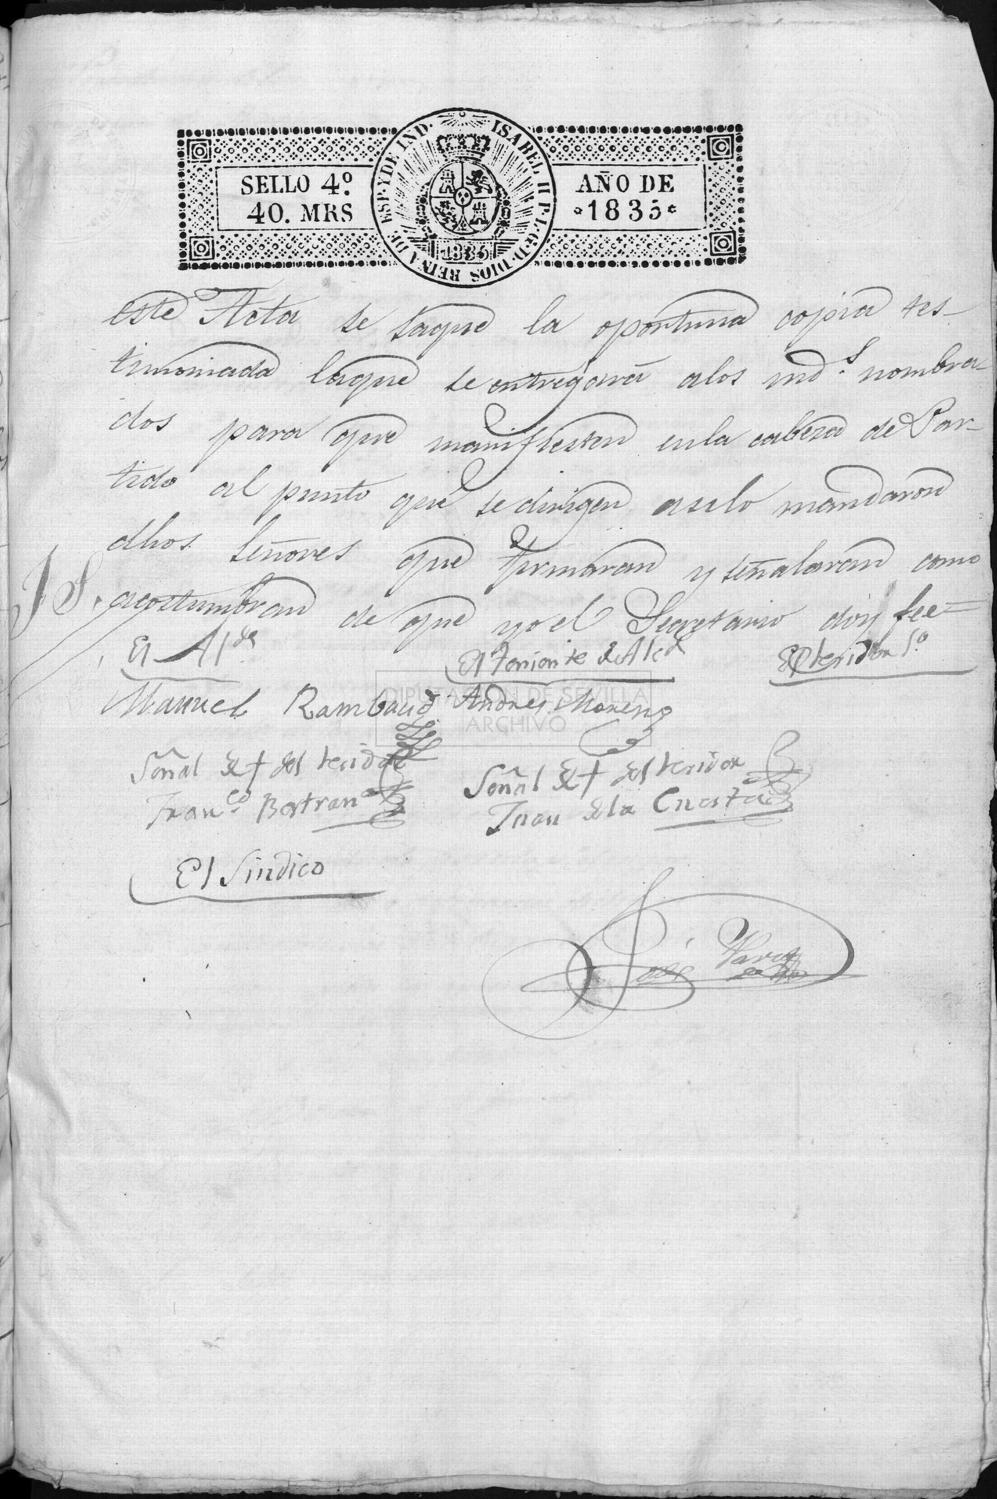 SELLO 4º
40. MRS
ISABEL II P. L. G. D. DIOS REINA DE ESP. Y DE IND.
1835
AÑO DE
1835
este Acta se saque la oportuna copia tes-
timoniada laque se entregará alos indˢ. nombra-
dos para que manifiesten enla cabeza de Par-
tido al punto que se dirigen asilo mandaron
dhos Señores que firmaran y señalaran como
acostumbran de que yo el Secretario doy fee=
El Alde
El Teniente de Alcd
El Rexidor 1º
Manuel Rambaud Andres Moreno
Señal de + del rexidor
Señal de + del rexidor
Franco Bertran
Juan dela Cuesta
El Sindico
José
DIPUTACIÓN DE SEVILLA
ARCHIVO